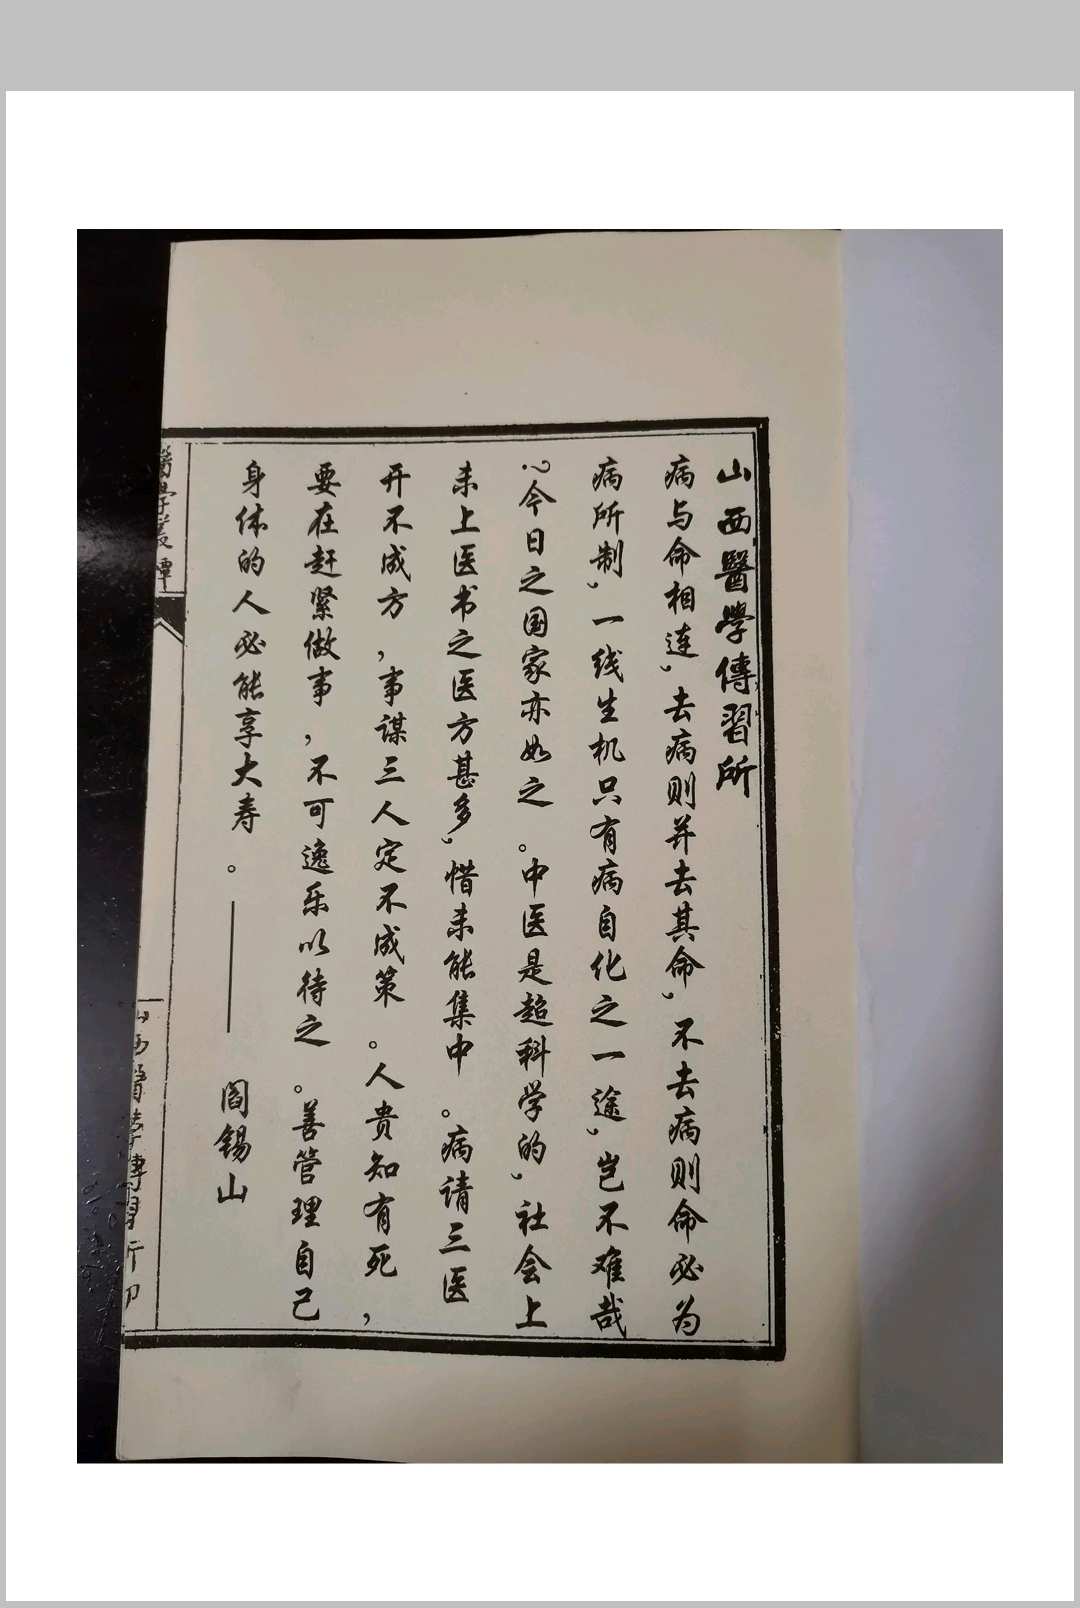 山西醫學傳習所
病与命相连,去病则并去其命,不去病则命必为
病所制,一线生机只有病自化之一途,岂不难哉
?今日之国家亦如之。中医是超科学的,社会上
未上医书之医方甚多,惜未能集中。病请三医
开不成方,事谋三人定不成策。人贵知有死,
要在赶紧做事,不可逸乐以待之。善管理自己
身体的人必能享大寿。——阎锡山
山西醫學傳習所印